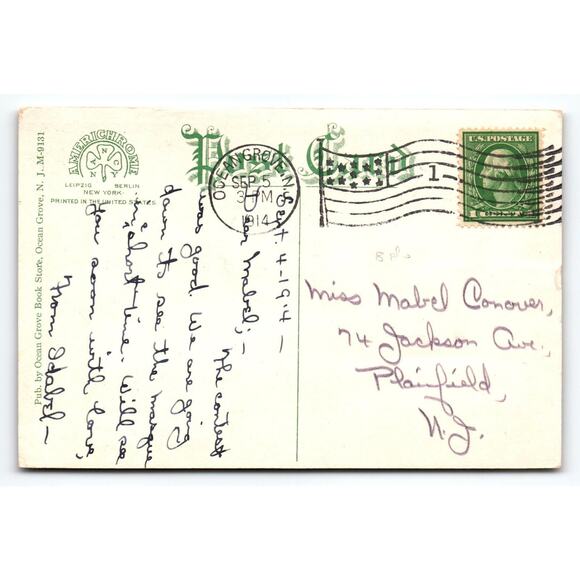 Post Card
AMERICHROME
A N C N Y
LEIPZIG BERLIN
NEW YORK
PRINTED IN THE UNITED STATES
Pub. by Ocean Grove Book Store, Ocean Grove, N. J. M-9131
OCEAN GROVE, N.J.
SEP 5
3 PM
1914
1
U.S. POSTAGE
Sept. 4-1914—
Dear Mabel;—
The contest
was good. We are going
down to see the masque
in a short time. Will see
you soon with love,
From Idabel—
Miss Mabel Conover,
74 Jackson Ave.,
Plainfield,
N.J.